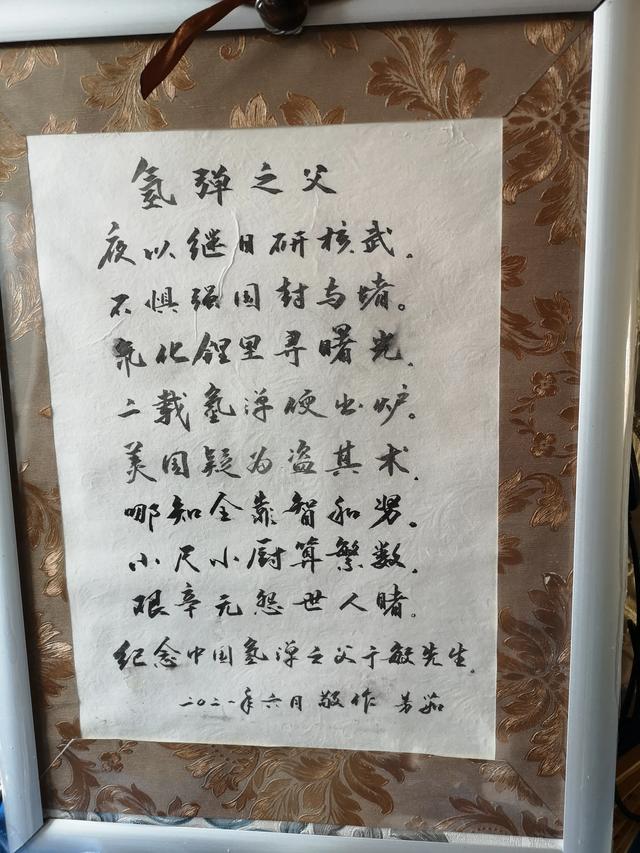 氢弹之父
夜以继日研核武.
不惧强国封与堵。
氘化锂里寻曙光.
二载氢弹便出炉。
美国疑为盗其术.
哪知全靠智和努。
小尺小厨算繁数.
艰辛无怨世人睹。
纪念中国氢弹之父于敏先生.
二〇二一年六月 敬作 芳茹